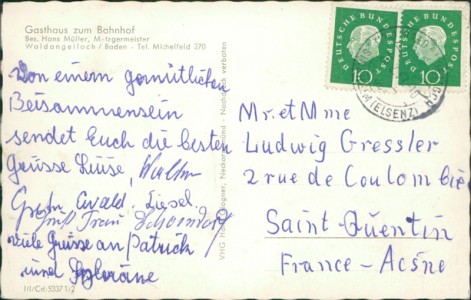 Gasthaus zum Bahnhof
Bes. Hans Müller, Metzgermeister
Waldangelloch / Baden - Tel. Michelfeld 370
Von einem gemütlichen
Beisammensein
sendet Euch die besten
Grüsse Luise, Walter
Ewald. Liesel.
viele Grüsse an Patrick
und
III/Cd:53371/2
Nachdruck verboten
DEUTSCHE BUNDESPOST
10
DEUTSCHE BUNDESPOST
10
(ELSENZ)
Mr. et Mme
Ludwig Gressler
2 rue de Coulombié
Saint-Quentin
France-Acsne